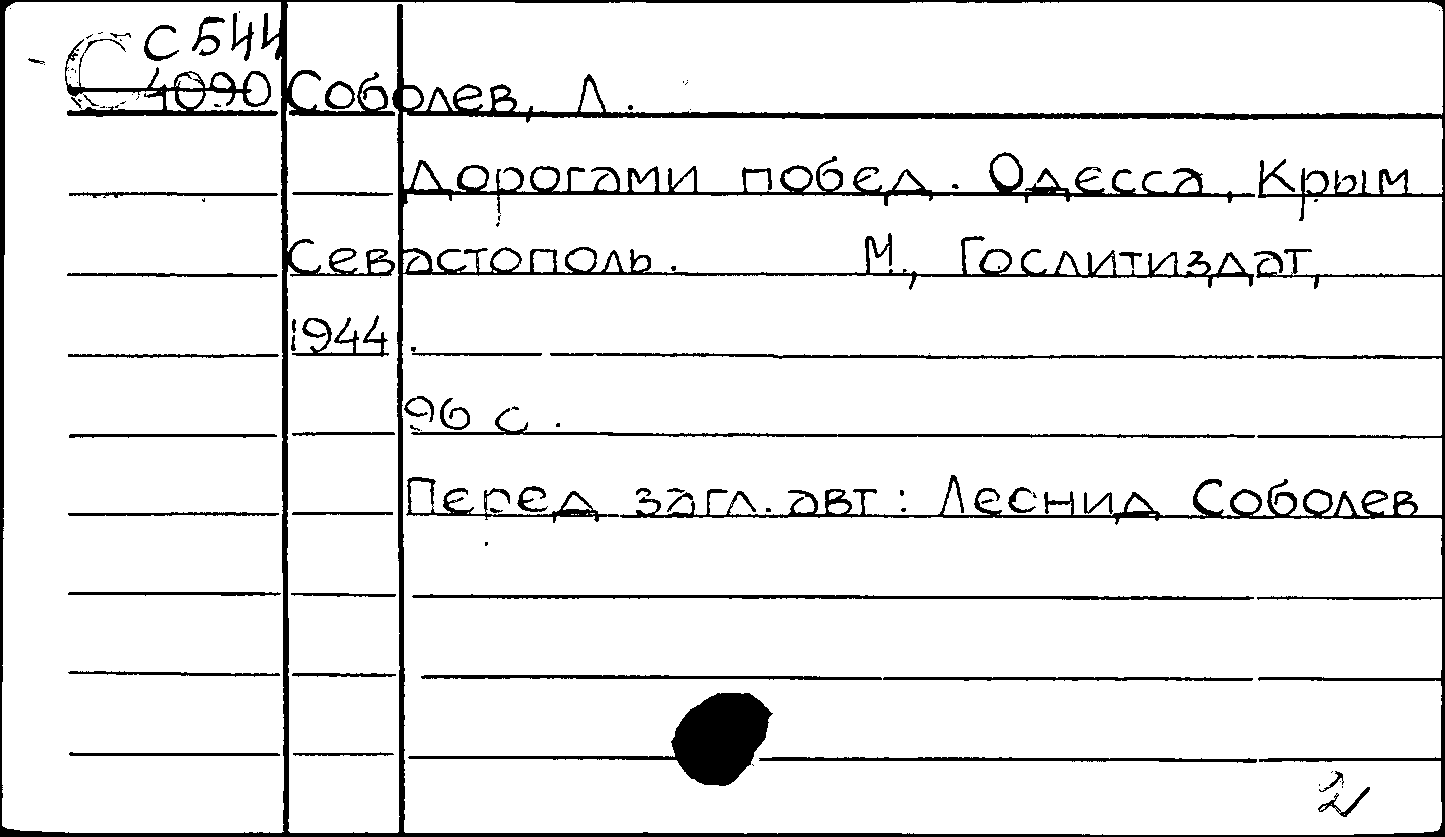 С С544
4090 Соболев, Л.
Дорогами побед. Одесса, Крым
Севастополь. М., Гослитиздат,
1944.
96 с.
Перед загл. авт: Леснид Соболев
2